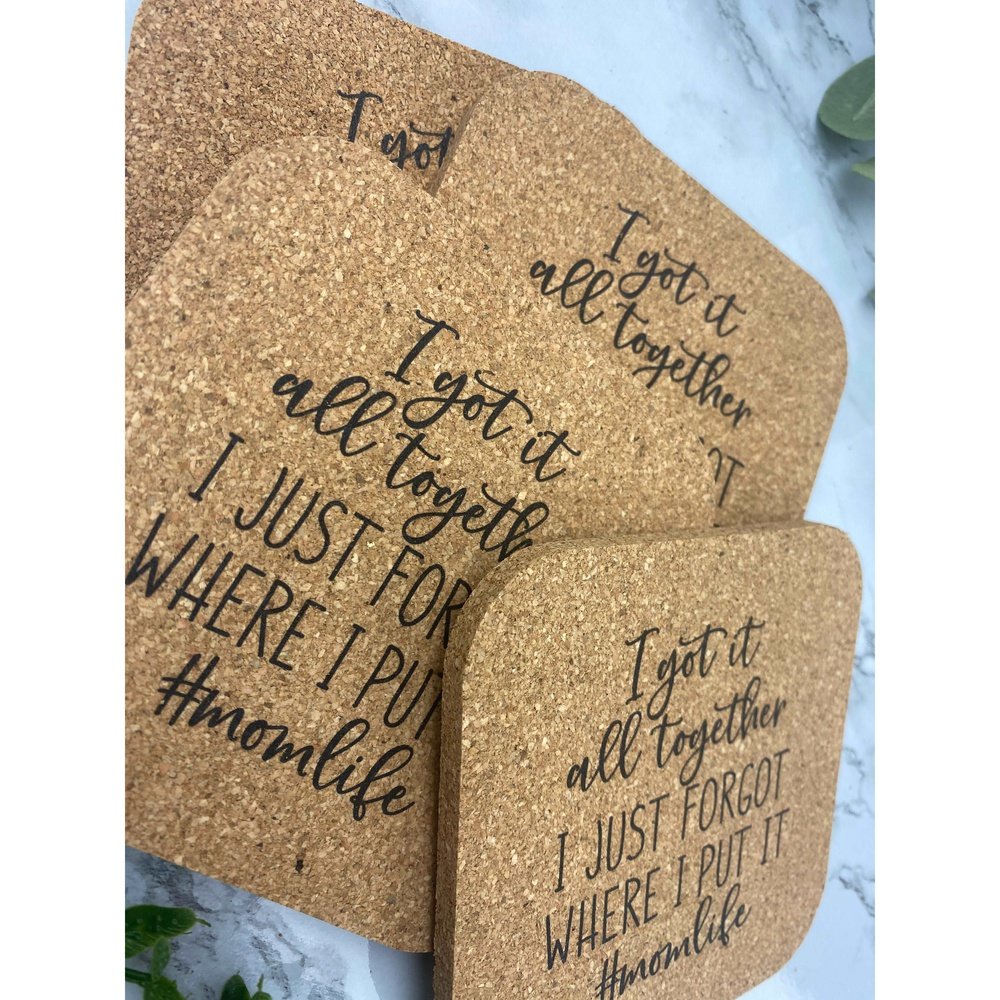 I got
I got it
all together
OT
I got it
all togeth
I JUST FOR
WHERE I PUT
#momlife
I got it
all together
I JUST FORGOT
WHERE I PUT IT
#momlife